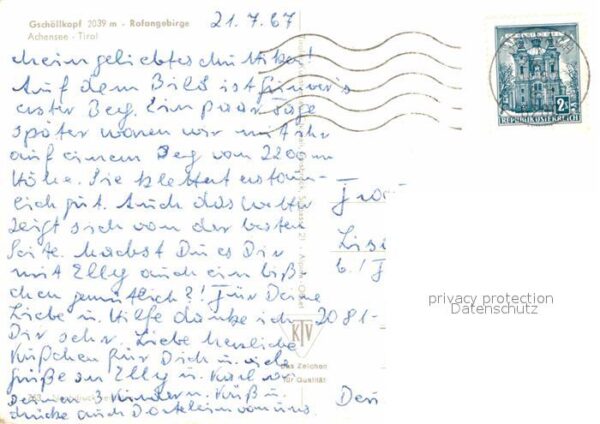 Gschöllkopf 2039 m - Rofangebirge
Achensee - Tirol
21.7.67
Mein geliebtes Muttilein!
Auf dem Bild ist
erster Berg. Ein paar Tage
später waren wir mit ihr
auf einem Berg von 2200 m
Höhe. Sie klettert erstaun-
lich gut. Auch das Wetter
zeigt sich von der besten
Seite. Machst Du es Dir
mit Elly auch ein biß-
chen gemütlich?! Für Deine
Liebe u. Hilfe danke ich
Dir sehr. Liebe herzliche
Küßchen für Dich u. viele
Grüße an Elly u. Karl von
Deinen 3 Kindern. Küß u.
drücke auch von uns.
Frau
b. / J
2081-
KV
Das Zeichen
für Qualität
2 S
REPUBLIK ÖSTERREICH
privacy protection
Datenschutz